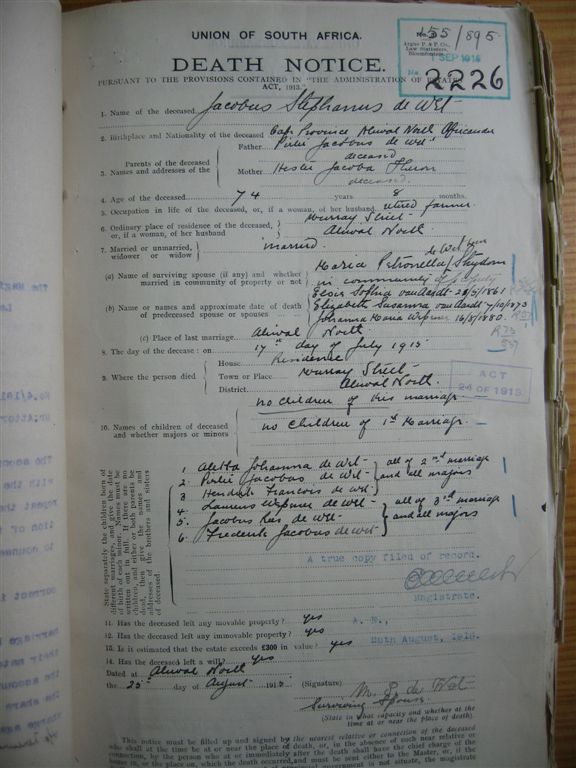 UNION OF SOUTH AFRICA.
155/895
Argus P. & P. Co.,
Law Stationers,
Bloemfontein.
SEP 1916
No. 2226
DEATH NOTICE.
PURSUANT TO THE PROVISIONS CONTAINED IN "THE ADMINISTRATION OF ESTATES
ACT, 1913."
1. Name of the deceased Jacobus Stephanus de Wet
2. Birthplace and Nationality of the deceased Cape Province Aliwal North Africander
Father Pieter Jacobus de Wet
deceased
Parents of the deceased
3. Names and addresses of the
Mother Hester Jacoba Theron
deceased
4. Age of the deceased 74 years 8 months.
5. Occupation in life of the deceased, or, if a woman, of her husband retired farmer
6. Ordinary place of residence of the deceased, or, if a woman, of her husband
Murray Street
Aliwal North
7. Married or unmarried, widower or widow married
(a) Name of surviving spouse (if any) and whether married in community of property or not
Maria Petronella de Wet Strydom
in community of property
(b) Name or names and approximate date of death of predeceased spouse or spouses
Elsie Sophia van Aardt 28/5/1861
Elizabeth Susanna van Aardt 7/10/1873
Johanna Maria Wepener 16/8/1880.
(c) Place of last marriage Aliwal North
8. The day of the decease: on 17th day of July 1915
9. Where the person died
House Residence
Town or Place Murray Street
District Aliwal North.
ACT
24 OF 1913
no children of this marriage.
10. Names of children of deceased and whether majors or minors
no children of 1st Marriage
State separately the children born of
different marriages, and give the date
of birth of each minor. Names must be
written out in full. If there are no
children, and either or both parents be
dead, then give the names and
addresses of the brothers and sisters
of deceased.
1. Aletta Johanna de Wet
2. Pieter Jacobus de Wet
3. Hendrik Francois de Wet
all of 2nd marriage
and all majors
4. Laurens Wepener de Wet
5. Jacobus Kas de Wet
6. Frederik Jacobus de Wet
all of 3rd marriage
and all majors
A true copy filed of record.
Magistrate.
11. Has the deceased left any movable property? yes
A. N.,
12. Has the deceased left any immovable property? yes
25th August, 1915.
13. Is it estimated that the estate exceeds £300 in value? yes
14. Has the deceased left a will? yes
Dated at Aliwal North
the 25th day of August 1915 (Signature) M. P. de Wet
Surviving Spouse
(State in what capacity and whether at the
time at or near the place of death.)
This notice must be filled up and signed by the nearest relative or connection of the deceased
who shall at the time be at or near the place of death, or, in the absence of such near relative or
connection, by the person who at or immediately after the death shall have the chief charge of the
house in, or the place on, which the death occurred, and must be sent either to the Master, or, if the